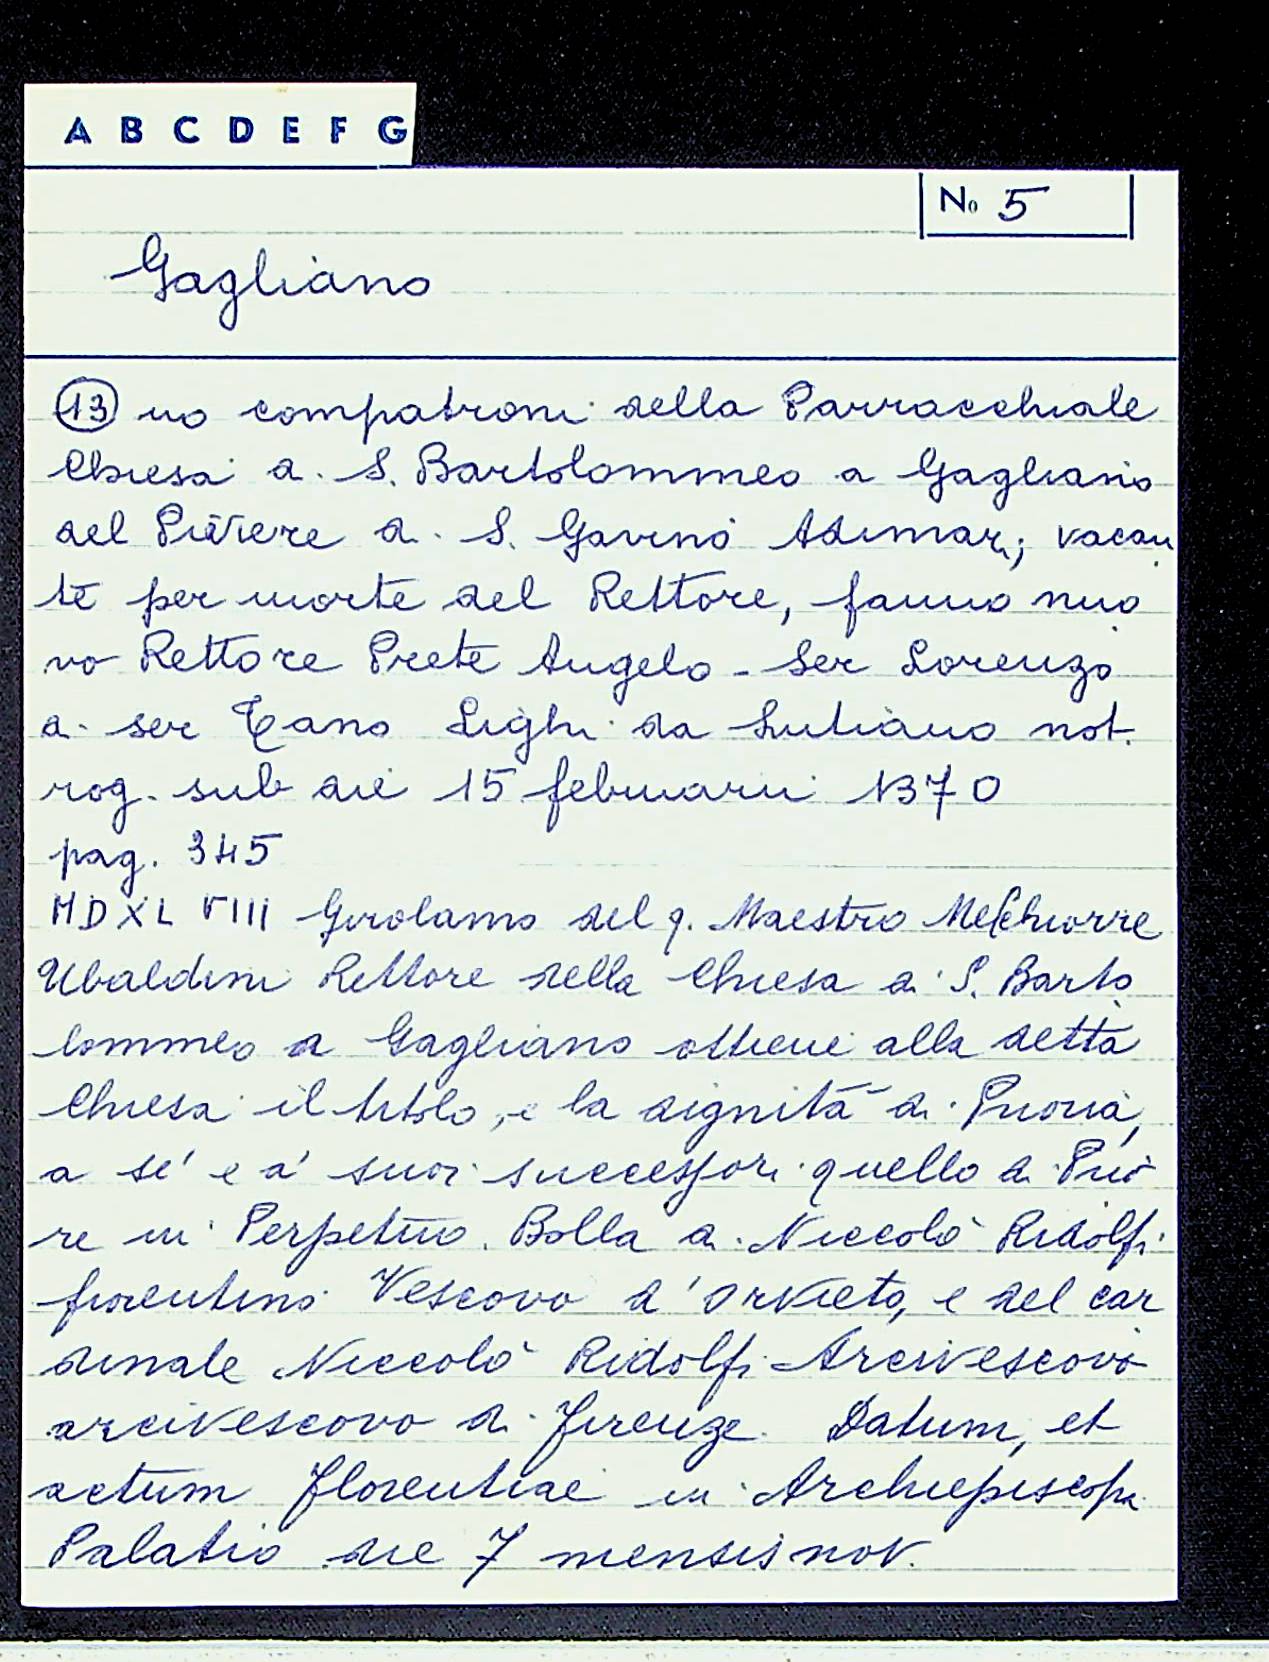 A B C D E F G
No 5
Gagliano
13 no compatroni della Parracchiale
Chiesa di S. Bartolommeo a Gagliano
del Piviere di S. Gavino Adimari; vacan
te per morte del Rettore, fanno nuo
vo Rettore Prete Angelo - Ser Lorenzo
di ser Tano Lighi da Lutiano not.
rog. sub die 15 februarii 1370
pag. 345
MDXLVIII Girolamo del q. Maestro Melchiorre
Ubaldini Rettore della Chiesa di S. Barto
lommeo a Gagliano ottiene alla detta
Chiesa il titolo, e la dignità di Prioria,
a sé e a' suoi successori quello di Prio
re in Perpetuo. Bolla di Niccolò Ridolfi
fiorentino Vescovo d'Orvieto, e del car
dinale Niccolò Ridolfi Arcivescovo
arcivescovo di Firenze. Datum, et
actum Florentiae in Archiepiscopi
Palatio die 7 mensis nov.